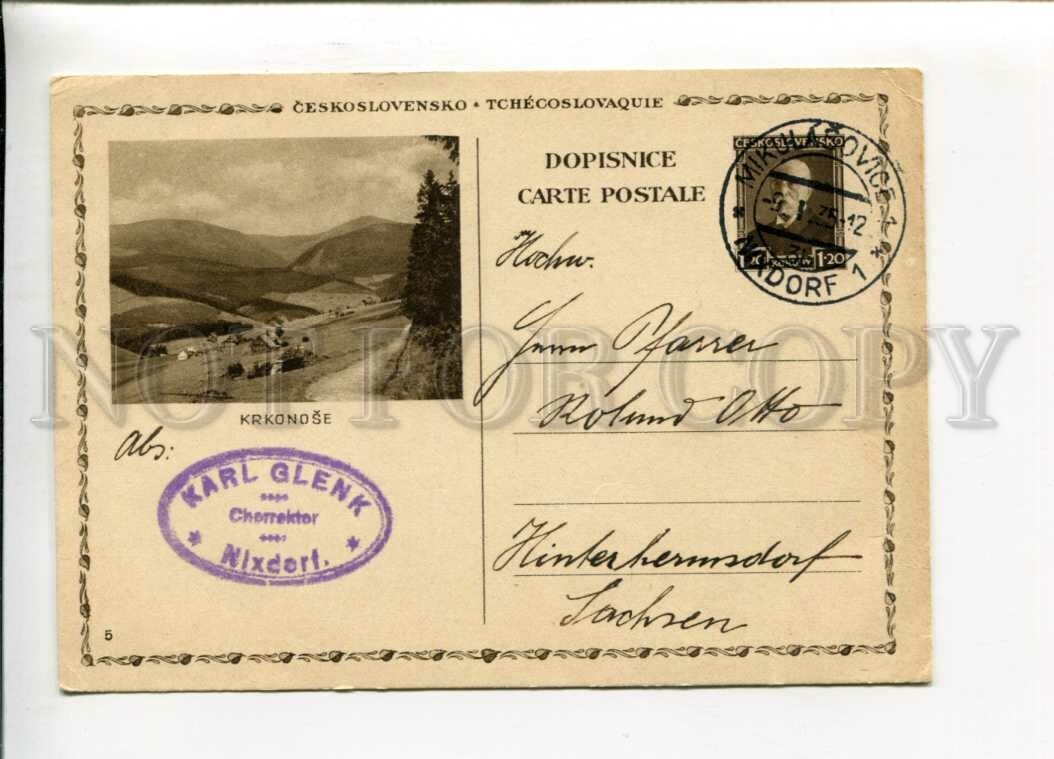 ČESKOSLOVENSKO * TCHÉCOSLOVAQUIE
DOPISNICE
CARTE POSTALE
ČESKOSLOVENSKO
1·20 1·20
MIKULÁŠOVICE 1
NIXDORF 1
Hochw.
Herrn Pfarrer
Roland Otto
Hinterhermsdorf
Sachsen
KRKONOŠE
Abs:
KARL GLENK
Chorrektor
Nixdorf.
5
NOT FOR COPY